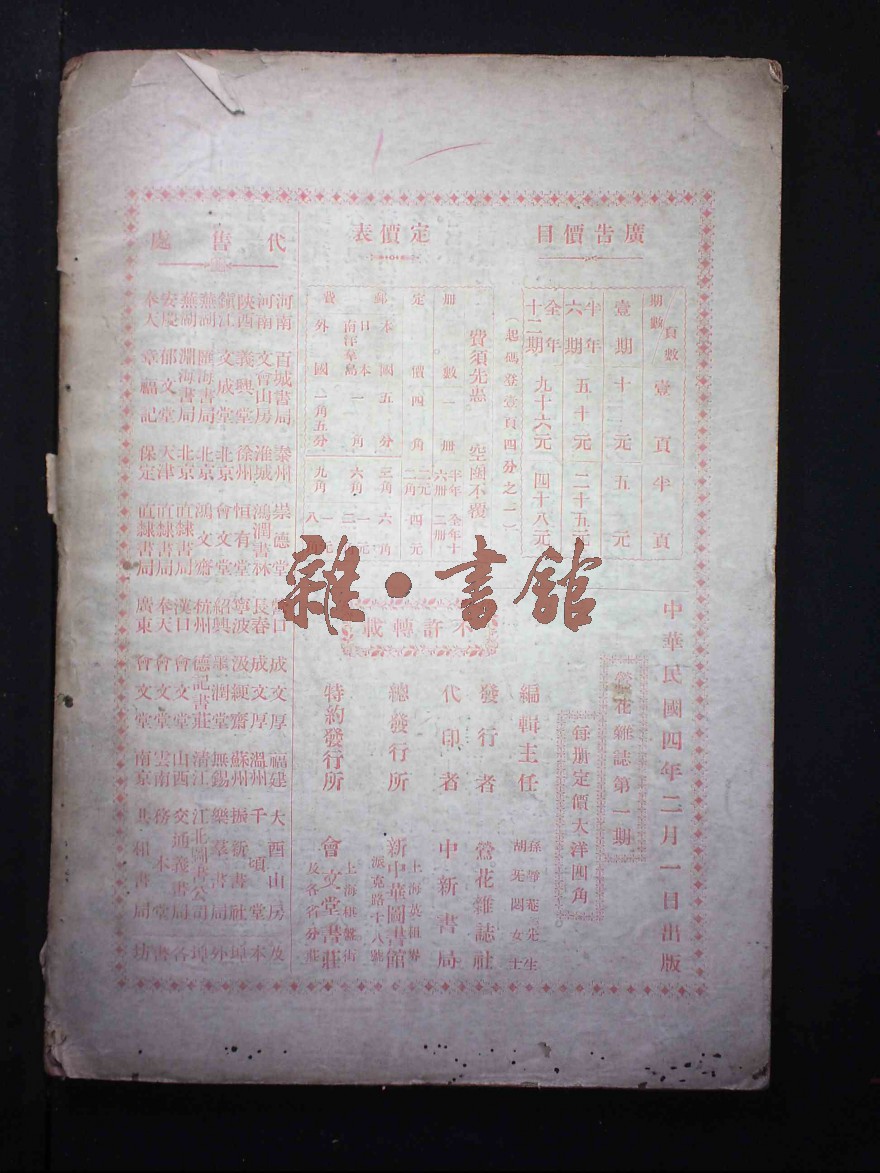 廣告價目
期數 頁數 壹頁 半頁
壹期 十二元 五元
半年六期 五十元 二十五元
全年十二期 九十六元 四十八元
(起碼登壹頁四分之一)
費須先惠 空函不覆
定價表
冊數 一冊 半年六冊 全年十二冊
定價 四角 二元二角 四元
郵費
本國 五分 三角 六角
日本 南洋羣島 一角 六角
外國 一角五分 九角
中華民國四年二月一日出版
鶯花雜誌第一期
每册定價大洋四角
編輯主任 孫靜菴先生 胡无悶女士
發行者 鶯花雜誌社
代印者 中新書局
總發行所 上海英租界派克路十八號 新中華圖書館
特約發行所 上海棋盤街 會文堂書莊 及各省分莊
不許轉載
代售處
河南 百城書局 泰州 崇德堂 營口 成文厚 福建 大酉山房
河南 文會山房 淮城 鴻潤書林 長春 成文厚 溫州 千頃堂
陝西 義興堂 徐州 恒有堂 寧波 汲綆齋 蘇州 振新書社
鎮江 文成堂 北京 會文堂 紹興 墨潤堂 無錫 樂羣書局
蕪湖 匯海書局 北京 鴻文齋 杭州 德記書莊 清江 江北圖書公司
蕪湖 瀾海書局 北京 直隸書局 漢口 會文堂 山西 交通義書局
安慶 郁文堂 天津 直隸書局 奉天 會文堂 雲南 務本堂
奉天 章福記 保定 直隸書局 廣東 會文堂 南京 共和書局
及本埠外埠各書坊
雜·書館